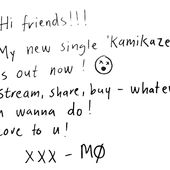 Hi friends!!!
My new single 'Kamikaze
s out now!
Stream, share, buy - whatev
u wanna do!
Love to u!
xxx - MØ